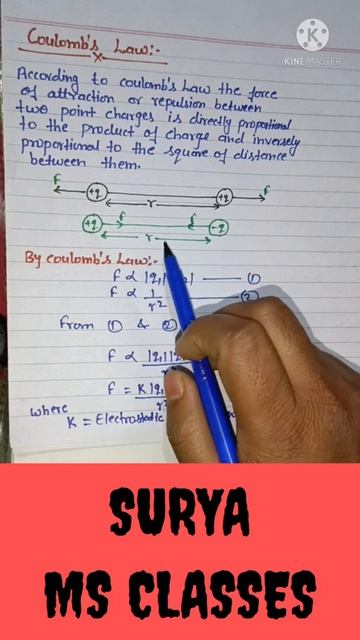 Coulomb's Law:-
KINEMASTER
According to coulomb's Law the force
of attraction or repulsion between
two point charges is directly proportional
to the product of charge and inversely
proportional to the square of distance
between them.
F +q r +q F
+q F F -q
r
By Coulomb's Law:-
F ∝ |q₁| |q₂| — ①
F ∝ 1/r² — ②
From ① & ②
F ∝ |q₁||q
F = K|q₁
where
K = Electrostatic
SURYA
MS CLASSES